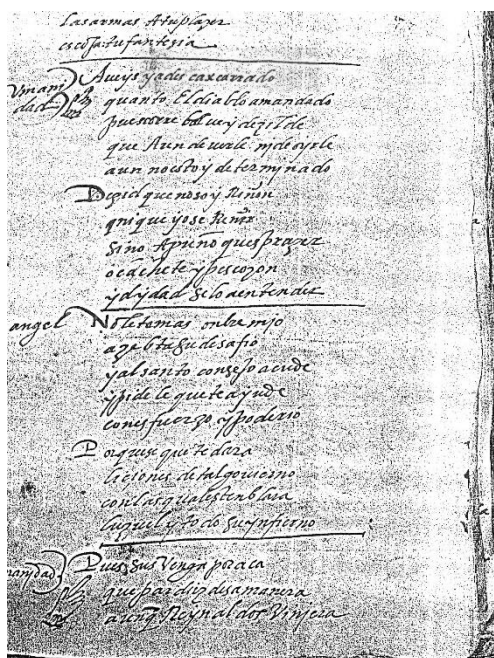 las armas A tu plazer
escoJa tu fantesia
Vmani
dad
Aveys ya des caxcarado
quanto El diablo a mandado
pues corre bolue y dezilde
que Aun de verle ni de oyrle
aun no estoy determinado
Dezid que no soy Riñon
ni que yo se Renir
sino A puño ques plazer
o cachete y pescoçon
y dy dad se lo a entender
angel
No le temas onbre mio
azebta su desafio
y al santo consejo acude
y pide le que te ayude
con esfuerzo y poderio
Porquese que te dara
liciones de tal gouierno
con las quales tenblara
luzuel y todo su ynfierno
manidad
Pues sus Venga por aca
que par diez desa manera
a Reynaldos Vinjera